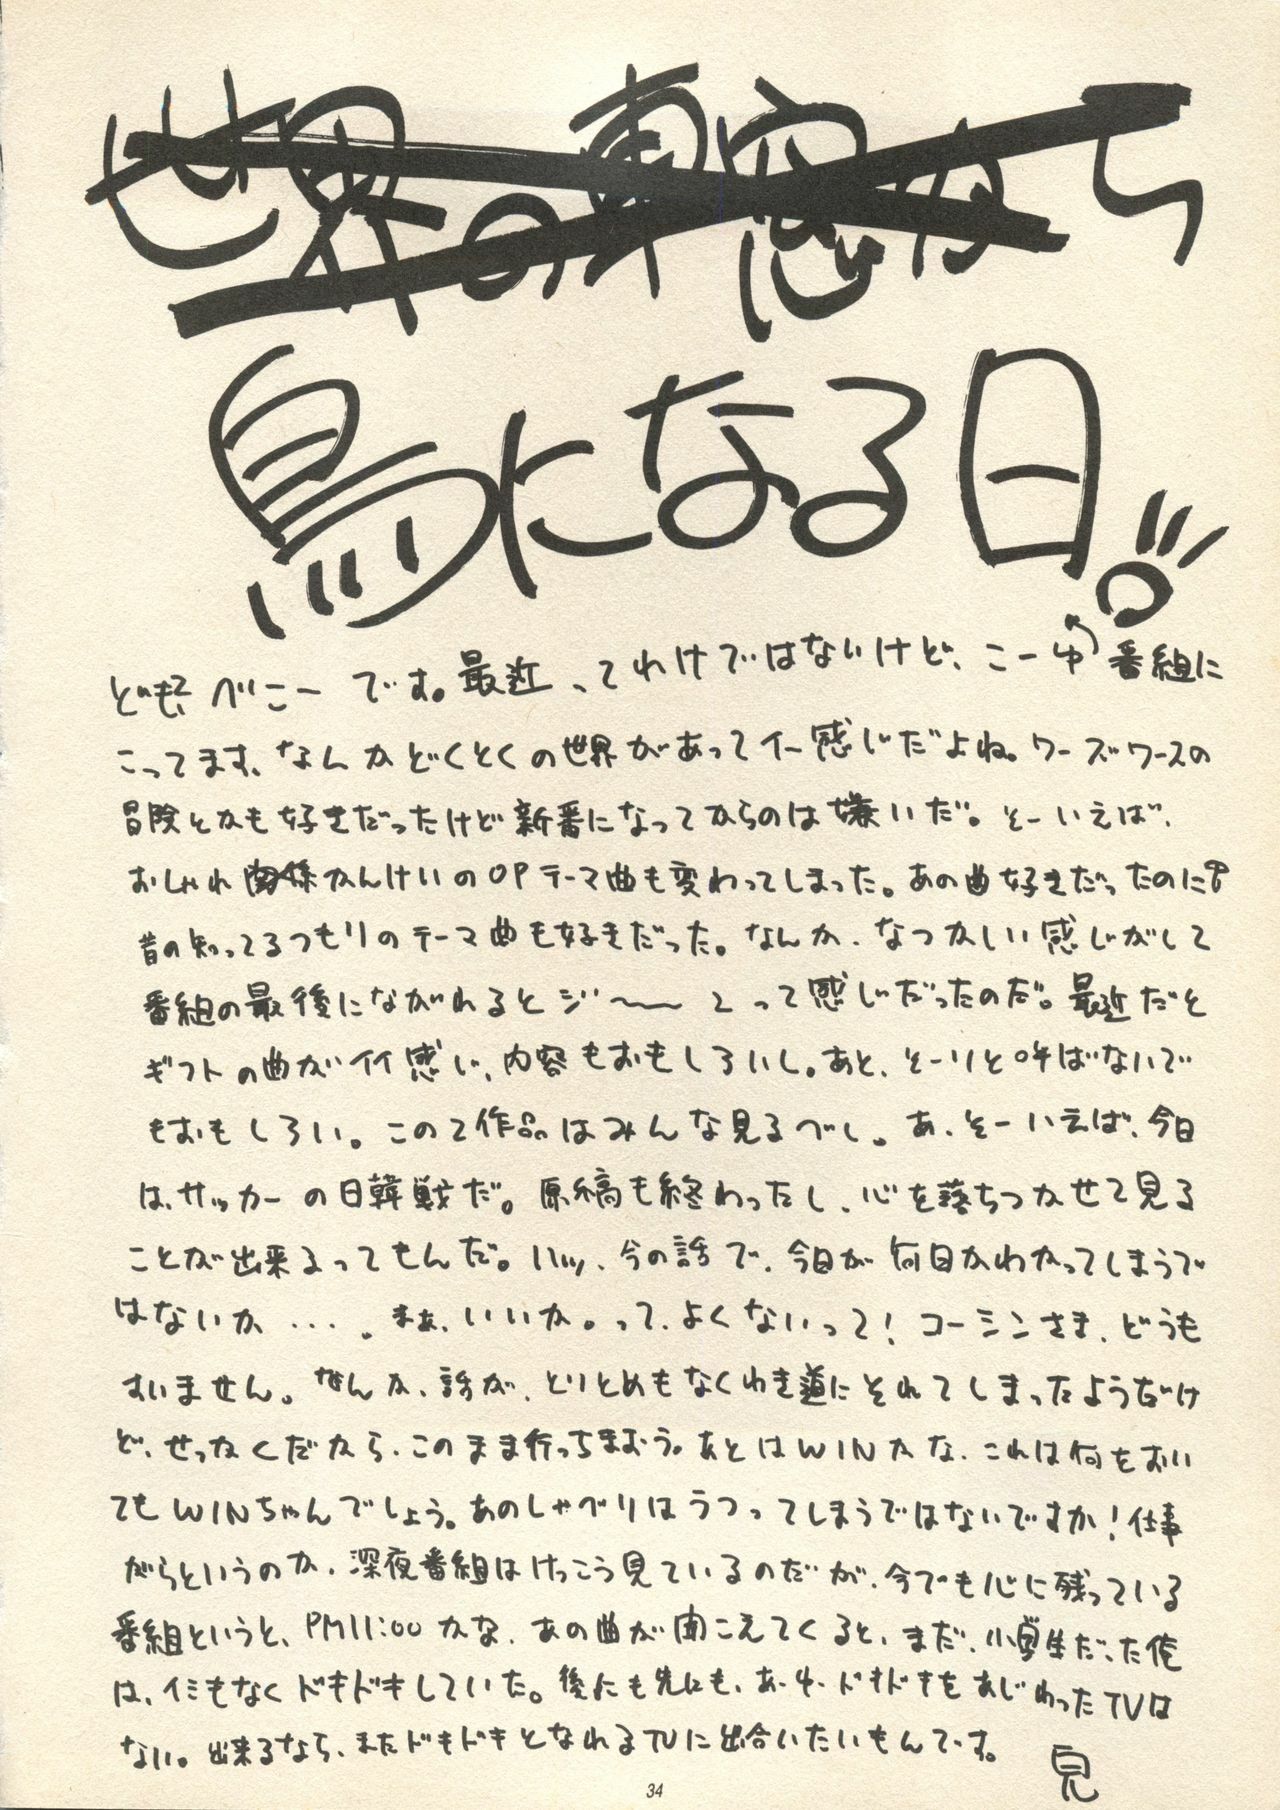 世界の車窓から
鳥になる日!!
ども、べにーです。最近ってわけではないけど、こーゆ番組に
こってます、なんかどくとくの世界があってイー感じだよね。ワーズワースの
冒険とかも好きだったけど新番になってからのは嫌いだ。そーいえば、
おしゃれ関係かんけいのOPテーマ曲も変わってしまった。あの曲好きだったのに
昔の知ってるつもりのテーマ曲も好きだった。なんか、なつかしい感じがして
番組の最後にながれるとジ〜〜ンって感じだったのだ。最近だと
ギフトの曲がイイ感じ、内容もおもしろいし。あと、そーりと呼ばないで
もおもしろい。この2作品はみんな見るべし。あ、そーいえば、今日
は、サッカーの日韓戦だ。原稿も終わったし、心を落ちつかせて見る
ことが出来るってもんだ。ハッ、今の話で、今日が何日かわかってしまうで
はないか・・・。まぁ、いいか。って、よくないって!コーシンさま、どうも
すいません。なんか、話が、とりとめもなくわき道にそれてしまったようだけ
ど、せっかくだから、このまま行っちまおう。あとはWINかな、これは何をおい
てもWINちゃんでしょう。あのしゃべりはうつってしまうではないですか!仕事
がらというのか、深夜番組はけっこう見ているのだが、今でも心に残っている
番組というと、PM11:00かな、あの曲が聞こえてくると、まだ、小学生だった俺
は、イミもなくドキドキしていた。後にも先にも、あーゆードキドキをあじわったTVは
ない。出来るなら、またドキドキとなれるTVに出合いたいもんです。
34